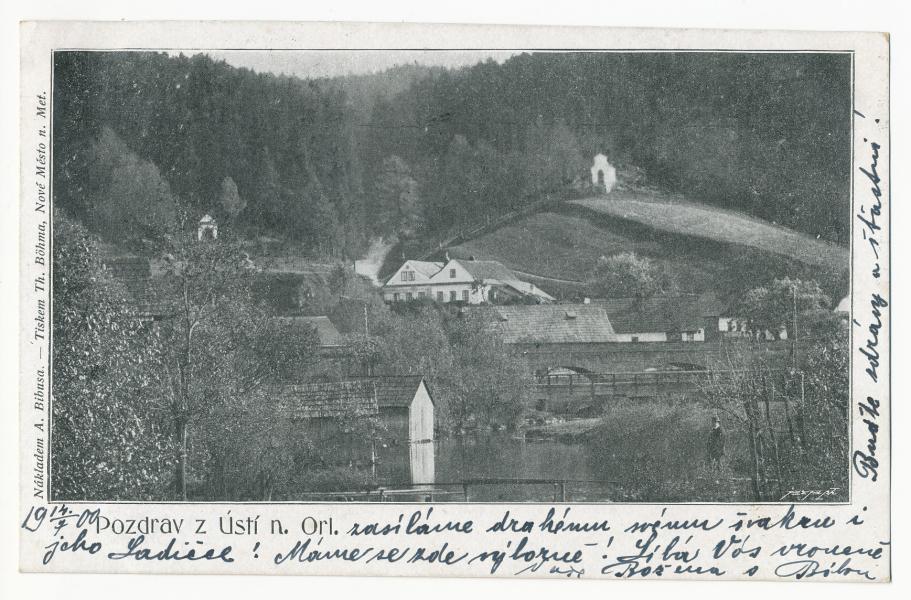 Nákladem A. Bibusa. — Tiskem Th. Böhma, Nové Město n. Met.
Buďte zdrávy a šťastni!
Pozdrav z Ústí n. Orl. zasíláme drahému svému švakru i
jeho Ladičce! Máme se zde výborně! Líbá Vás vroucně
Božena s